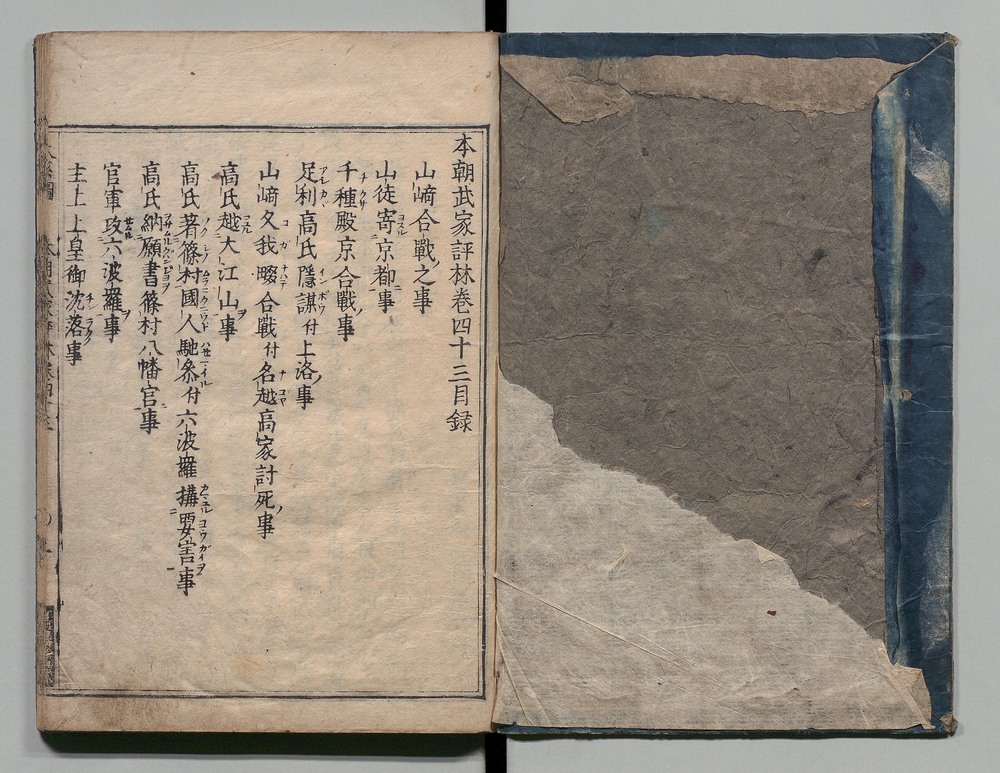 本朝武家評林巻四十三目録
山﨑合戰之事
山徒寄京都事
千種殿京合戰事
足利高氏隱謀付上洛事
山﨑久我畷合戰付名越高家討死事
高氏越大江山事
高氏著篠村國人馳參付六波羅搆要害事
高氏納願書篠村八幡宮事
官軍攻六波羅事
主上上皇御沈落事